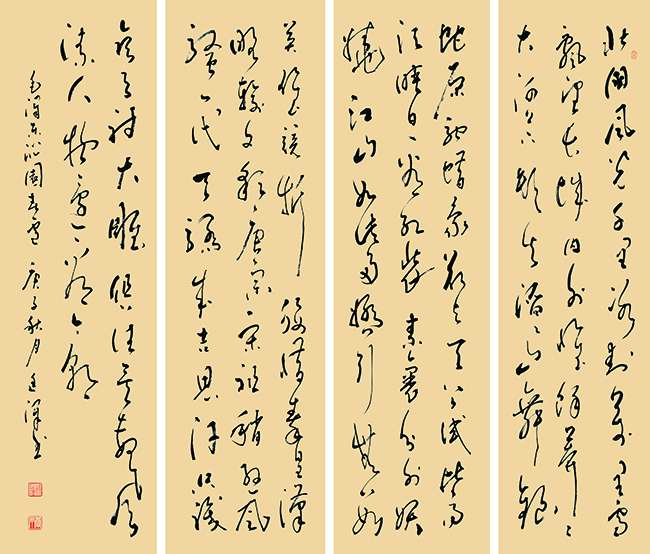 北国风光千里冰封万里雪
飘望长城内外惟馀莽莽
大河上下顿失滔滔山舞银
蛇原驰蜡象欲与天公试比高
须晴日看红装素裹分外妖
娆江山如此多娇引无数
英雄竞折腰惜秦皇汉
略输文彩唐宗宋祖稍逊风
骚一代天骄成吉思汗只识
弯弓射大雕俱往矣数风
流人物还看今朝
毛泽东沁园春雪 庚子秋月 书